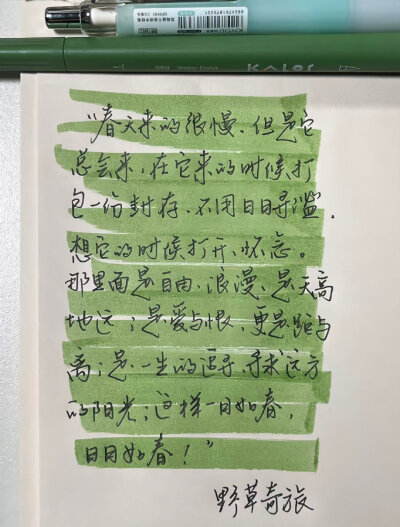 KALOR
090 Water Color
6924701970331
"春天来的很慢、但是它
总会来，在它来的时候打
包一份封存、不用日日寻滥.
想它的时候打开、怀念。
那里面是自由、浪漫、是天高
地远；是爱与恨、更是距与
离；是一生的追寻、寻求远方
的阳光；这样一日如春，
日日如春！"
野草奇旅